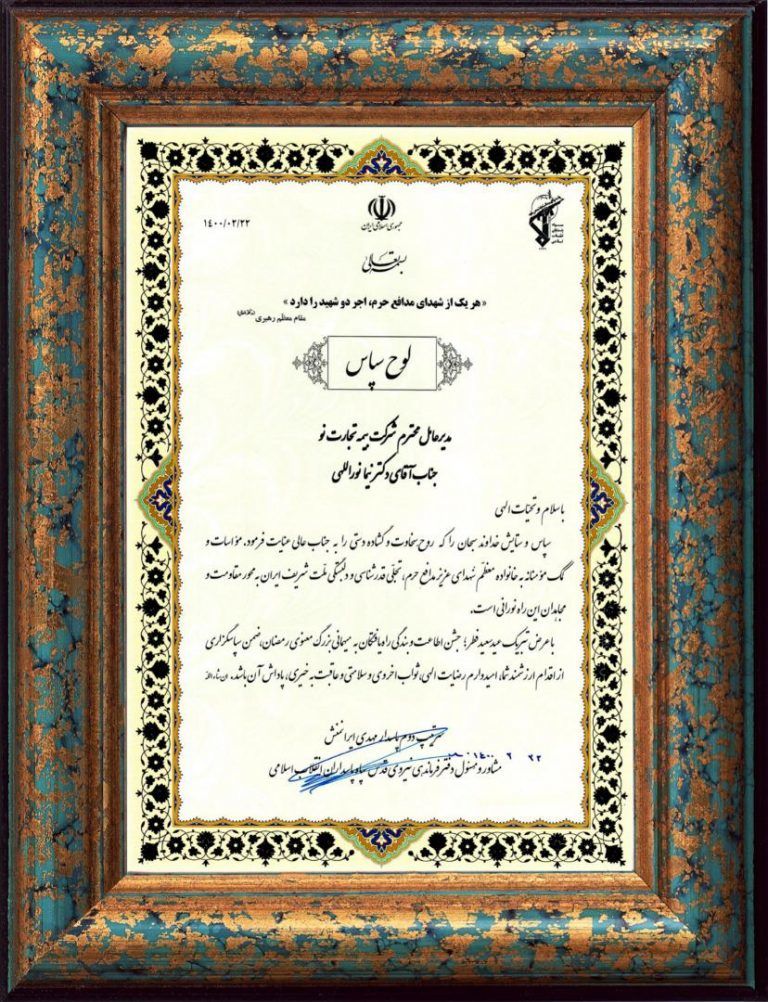 ۱٤۰۰/۰۲/۲۲
جمهوری اسلامی ایران
بسمه تعالی
«هر یک از شهدای مدافع حرم، اجر دو شهید را دارد»
مقام معظم رهبری
لوح سپاس
مدیرعامل محترم شرکت بیمه تجارت نو
جناب آقای دکتر نیما نوراللهی
با سلام و تحیات الهی
سپاس و ستایش خداوند سبحان را که روح سخاوت و گشاده دستی را به جناب عالی عنایت فرمود. مؤاسات و
کمک مؤمنانه به خانواده معظم شهدای عزیز مدافع حرم، تجلی قدرشناسی و دلبستگی ملت شریف ایران به محور مقاومت و
مجاهدان این راه نورانی است.
با عرض تبریک عید سعید فطر؛ جشن اطاعت و بندگی راه یافتگان به میهمانی بزرگ معنوی رمضان، ضمن سپاسگزاری
از اقدام ارزشمند شما، امیدوارم رضایت الهی، ثواب اخروی و سلامتی و عاقبت به خیری، پاداش آن باشد. ان شاءالله
سرتیپ دوم پاسدار مهدی ایرانمنش
۱٤۰۰ ۲ ۲۲
مشاور و مسئول دفتر فرماندهی نیروی قدس سپاه پاسداران انقلاب اسلامی